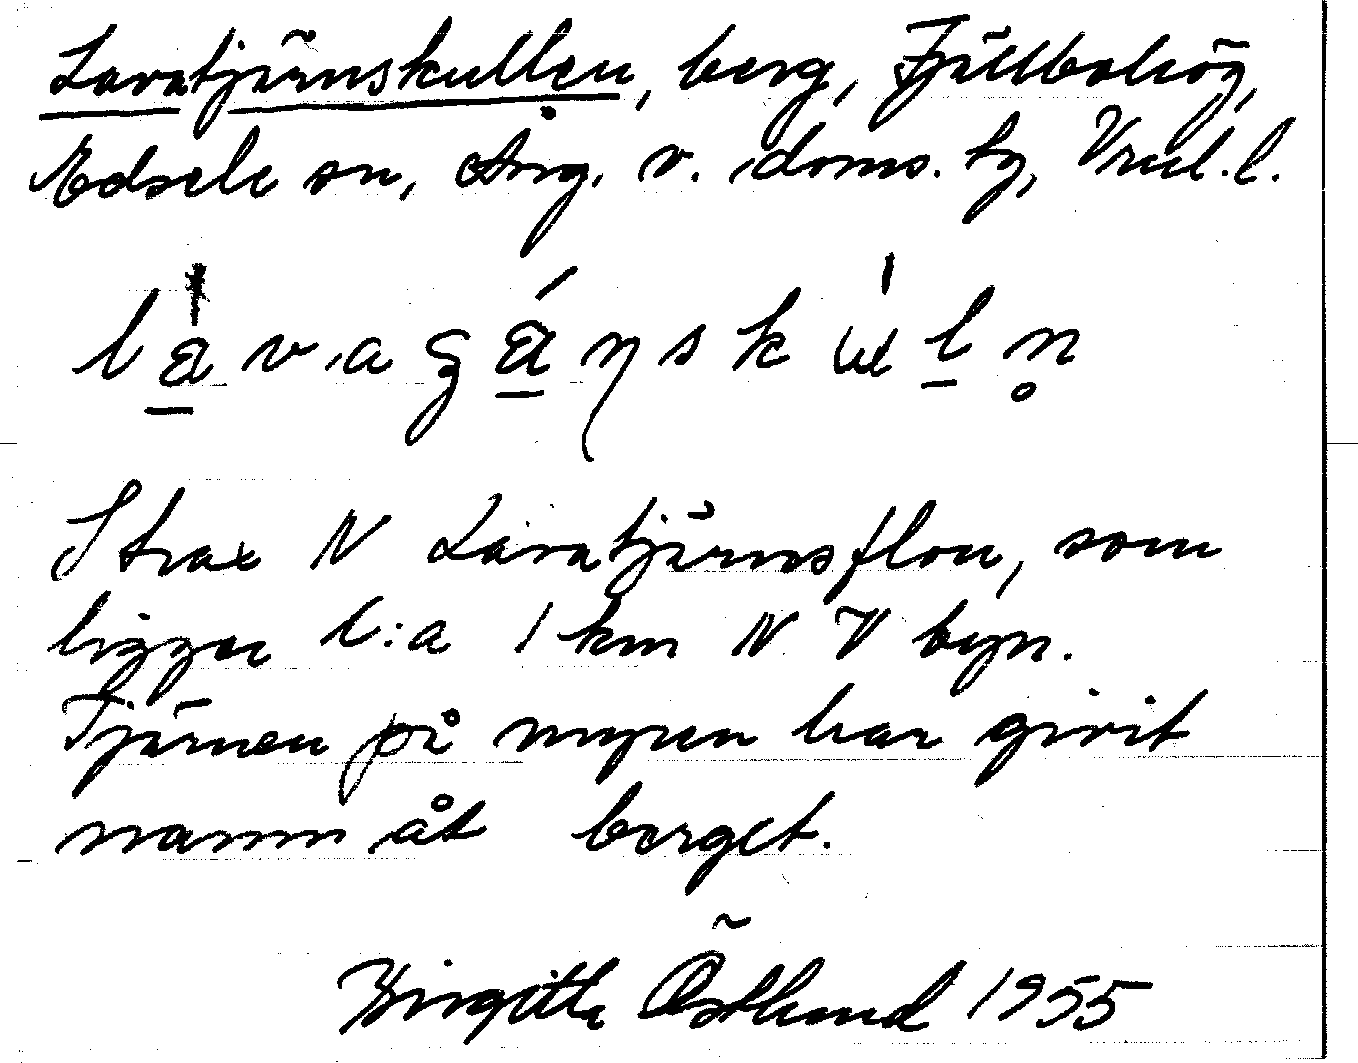 Lavatjärnskullen, berg, Fjällbohög,
Edsele sn, Ång. v. doms. tg, Vnl. l.
Strax N Lavatjärnsflon, som
ligger c:a 1 km N V byn.
Tjärnen på myren har givit
namn åt berget.
Birgitta Östlund 1955